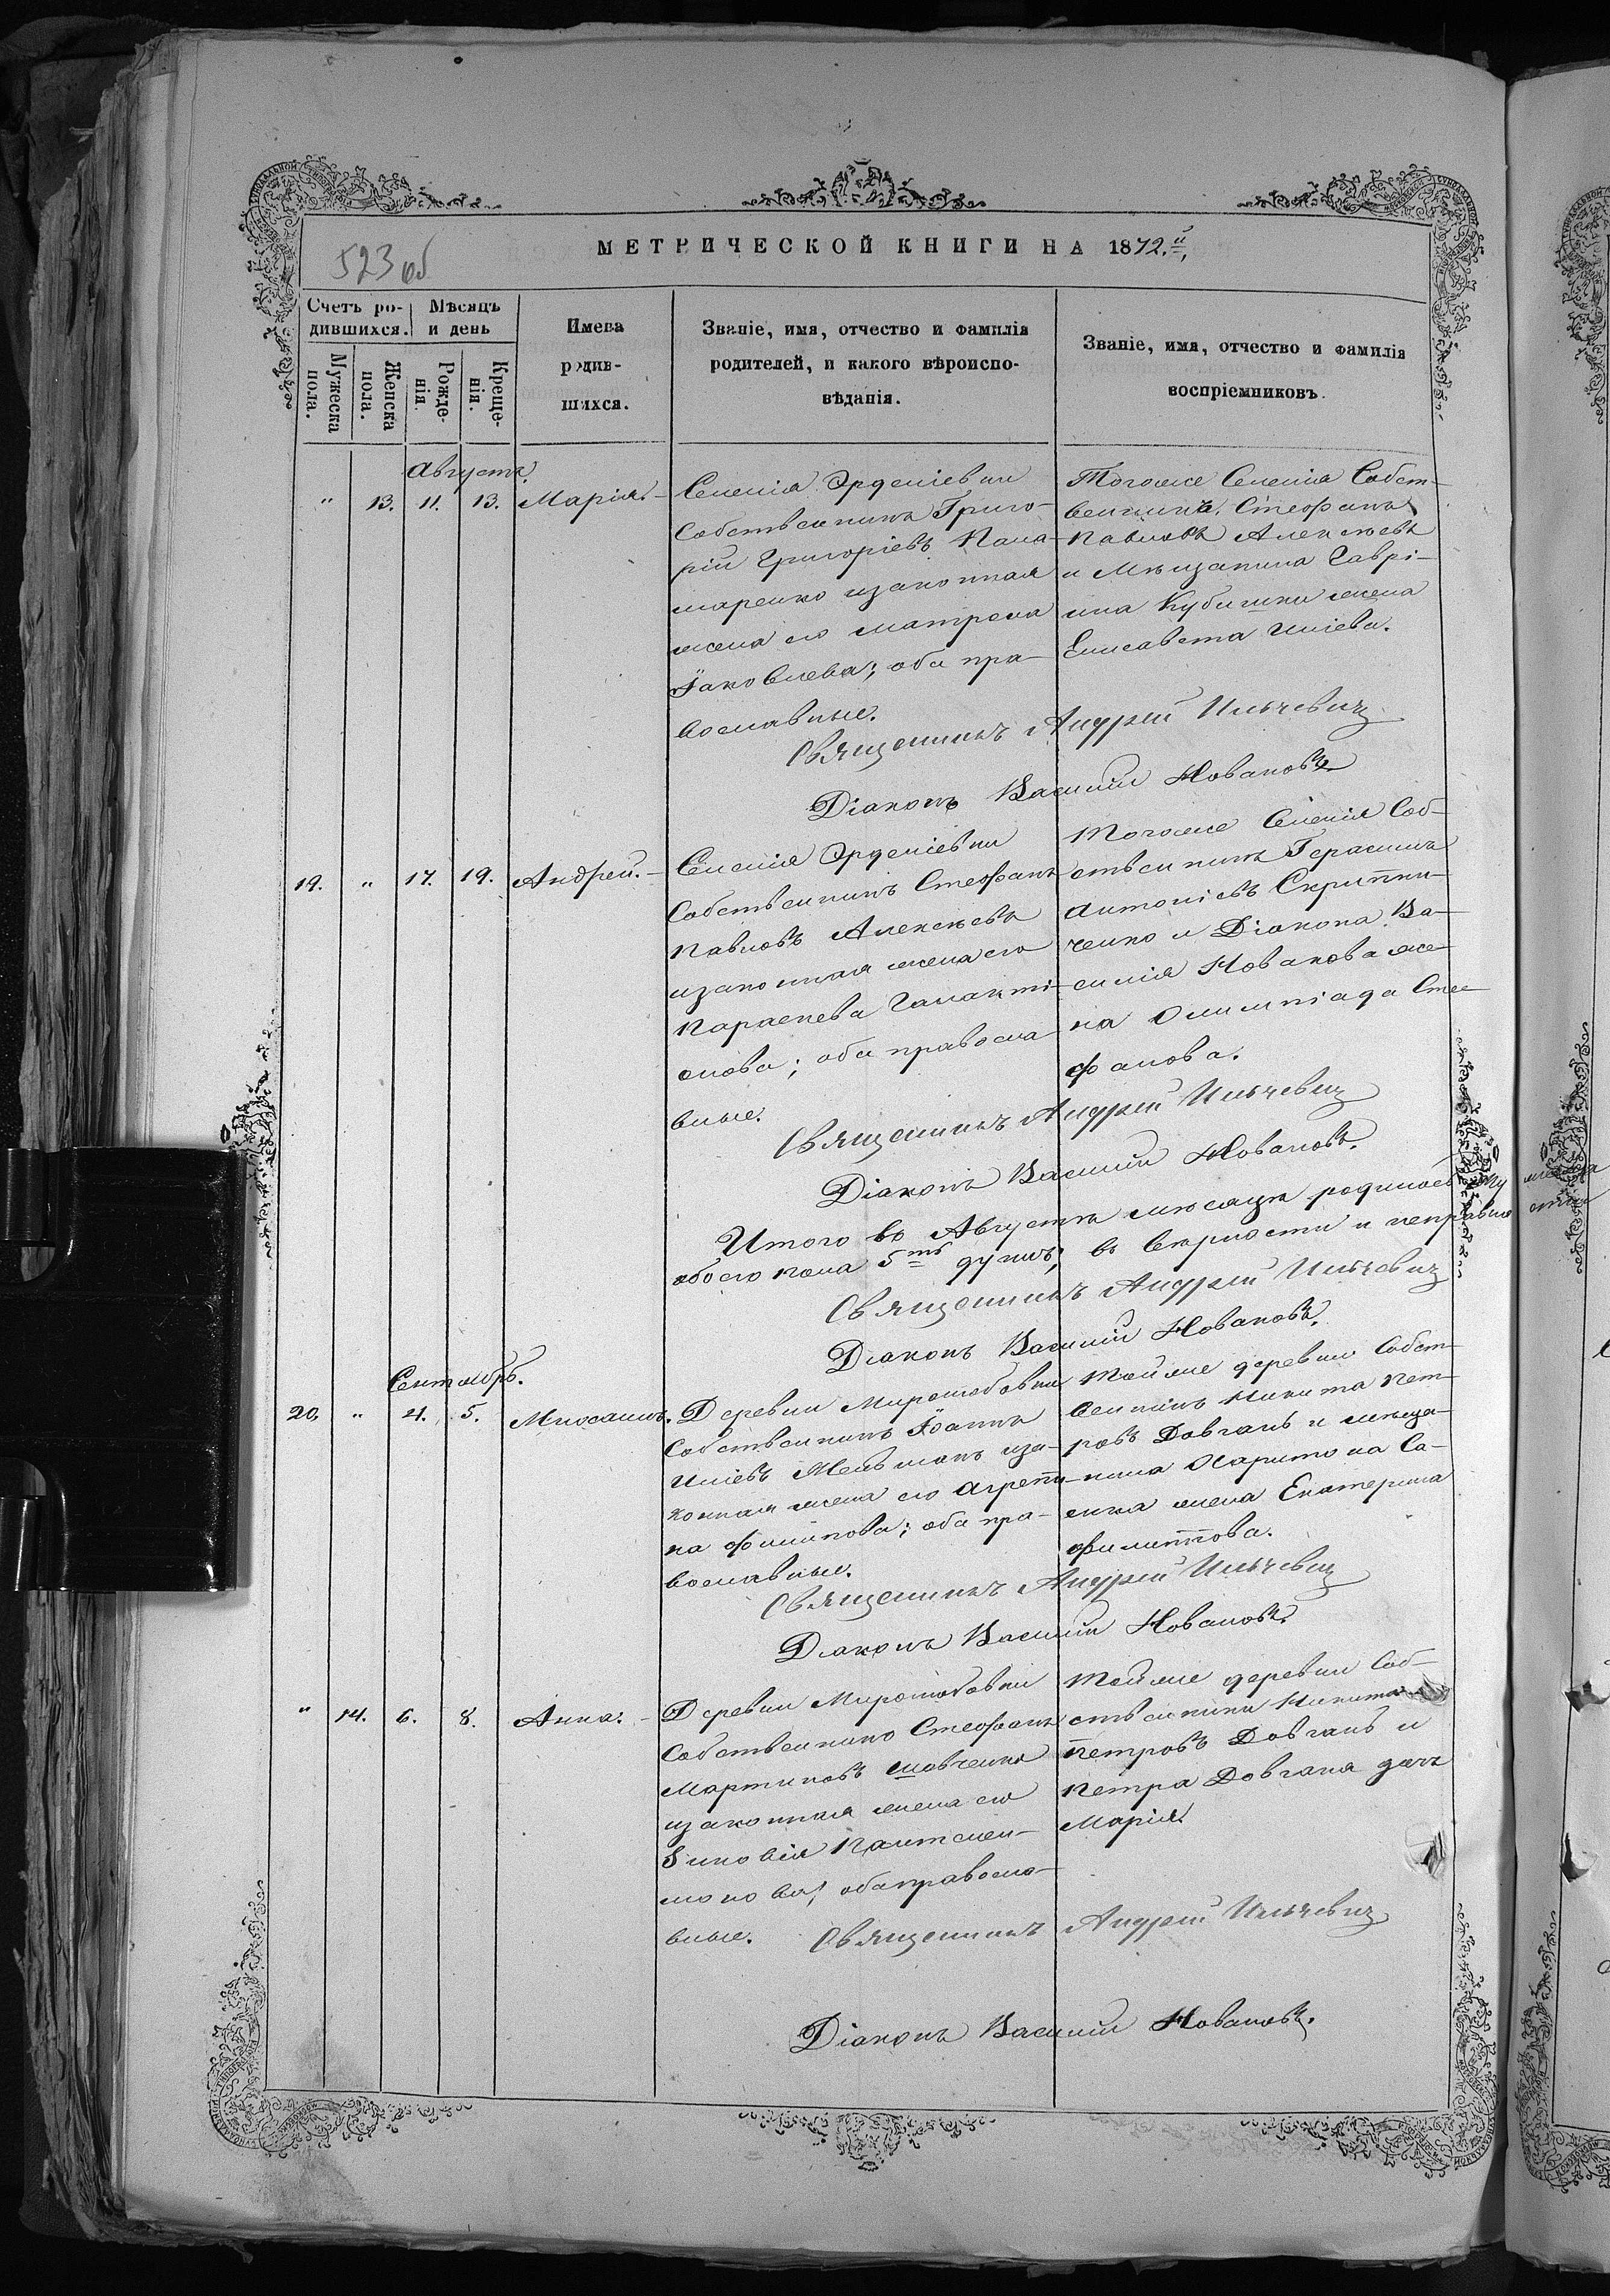 МЕТРИЧЕСКОЙ КНИГИ НА 1872.й
523 об
Счетъ ро-
дившихся.
Мѣсяцъ
и день
Имена
родив-
шихся.
Званіе, имя, отчество и фамилія
родителей, и какого вѣроиспо-
вѣданія.
Званіе, имя, отчество и фамилія
воспріемниковъ.
Мужеска
пола.
Женска
пола.
Рожде-
нія.
Креще-
нія.
Августъ.
" 13. 11. 13. Марія.
Селенія Эрделіевки
Собственникъ Григо-
рій Григоріевъ Пала-
маренко изаконная
жена его Матрона
Іаковлева; оба пра-
вославные.
Тогоже Селенія Собст-
венникъ Стефанъ
Павловъ Алексѣевъ
и Мѣщанина Гаврі-
ила Кубышки жена
Елисавета Иліева.
Священникъ Андрей Ильчевичъ
Діаконъ Василій Новаковъ
19. " 17. 19. Андрей.
Селенія Эрделіевки
Собственникъ Стефанъ
Павловъ Алексѣевъ
изаконная жена его
Параскева Галакті-
онова; оба правосла-
вные.
Тогоже Селенія Соб-
ственникъ Герасимъ
Антоніевъ Скрипни-
ченко и Діакона Ва-
силія Новакова же-
на Олимпіада Сте-
фанова.
Священникъ Андрей Ильчевичъ
Діаконъ Василій Новаковъ.
Итого во Августѣ мѣсяцѣ родилось
обоего пола 5ть душъ, въ вѣрности и неправле
Священникъ Андрей Ильчевичъ
Діаконъ Василій Новаковъ.
Сентябрь.
20. " 4. 5. Мносанъ.
Деревни Миролюбовки
Собственникъ Іоаннъ
Иліевъ Мельманъ иза-
конная жена его Агрепи-
на Филипова; оба пра-
вославные.
Тойже деревни Собст-
венникъ Никита Пет-
ровъ Довганъ и мѣща-
нина Харитона Са-
енка жена Екатерина
Филиппова.
Священникъ Андрей Ильчевичъ
Діаконъ Василій Новаковъ.
" 14. 6. 8. Анна.
Деревни Миролюбовки
Собственникъ Стефанъ
Мартиновъ Шовченко
изаконная жена его
Зиновія Пантелеи-
монова; оба правосла-
вные.
Тойже деревни Соб-
ственники Никита
Петровъ Довганъ и
Петра Довгана дочь
Марія.
Священникъ Андрей Ильчевичъ
Діаконъ Василій Новаковъ.